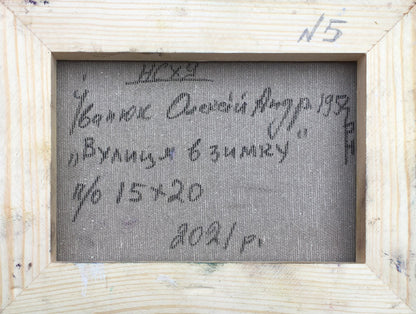 N5
НСХУ
Івалюк Олексій Андр. 1954
рн
„Вулиця в зимку"
п/о 15×20
2021 р.